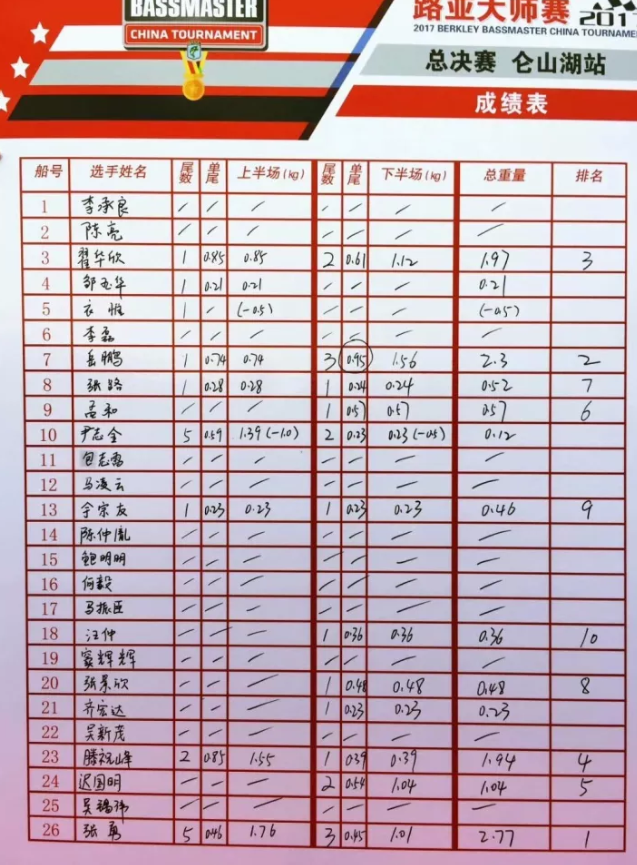 BASSMASTER
CHINA TOURNAMENT
路亚大师赛 2017
2017 BERKLEY BASSMASTER CHINA TOURNAME
总决赛 仑山湖站
成绩表
船号 选手姓名 尾数 单尾 上半场(kg) 尾数 单尾 下半场(kg) 总重量 排名
1 李承良 / / / / / / /
2 陈亮 / / / / / / /
3 翟华欣 1 0.85 0.85 2 0.61 1.12 1.97 3
4 邹玉华 1 0.21 0.21 / / / 0.21
5 衣恒 1 / (-0.5) / / / (-0.5)
6 李磊 / / / / / / /
7 岳鹏 1 0.74 0.74 3 0.95 1.56 2.3 2
8 张路 1 0.28 0.28 1 0.24 0.24 0.52 7
9 孟和 / / / 1 0.57 0.57 0.57 6
10 尹志全 5 0.59 1.39(-1.0) 2 0.23 0.23(-0.5) 0.12
11 包志 / / / / / / /
12 马凌云 / / / / / / /
13 宗友 1 0.23 0.23 1 0.23 0.23 0.46 9
14 陈仲胤 / / / / / / /
15 鲍明明 / / / / / / /
16 何毅 / / / / / / /
17 马振臣 / / / / / / /
18 汪仲 / / / 1 0.36 0.36 0.36 10
19 窦辉辉 / / / / / / /
20 张景欣 / / / 1 0.48 0.48 0.48 8
21 齐宏达 / / / 1 0.23 0.23 0.23
22 吴新茂 / / / / / / /
23 滕祝峰 2 0.85 1.55 1 0.39 0.39 1.94 4
24 迟国明 / / / 2 0.54 1.04 1.04 5
25 吴锡伟 / / / / / / /
26 张勇 5 0.46 1.76 3 0.45 1.01 2.77 1